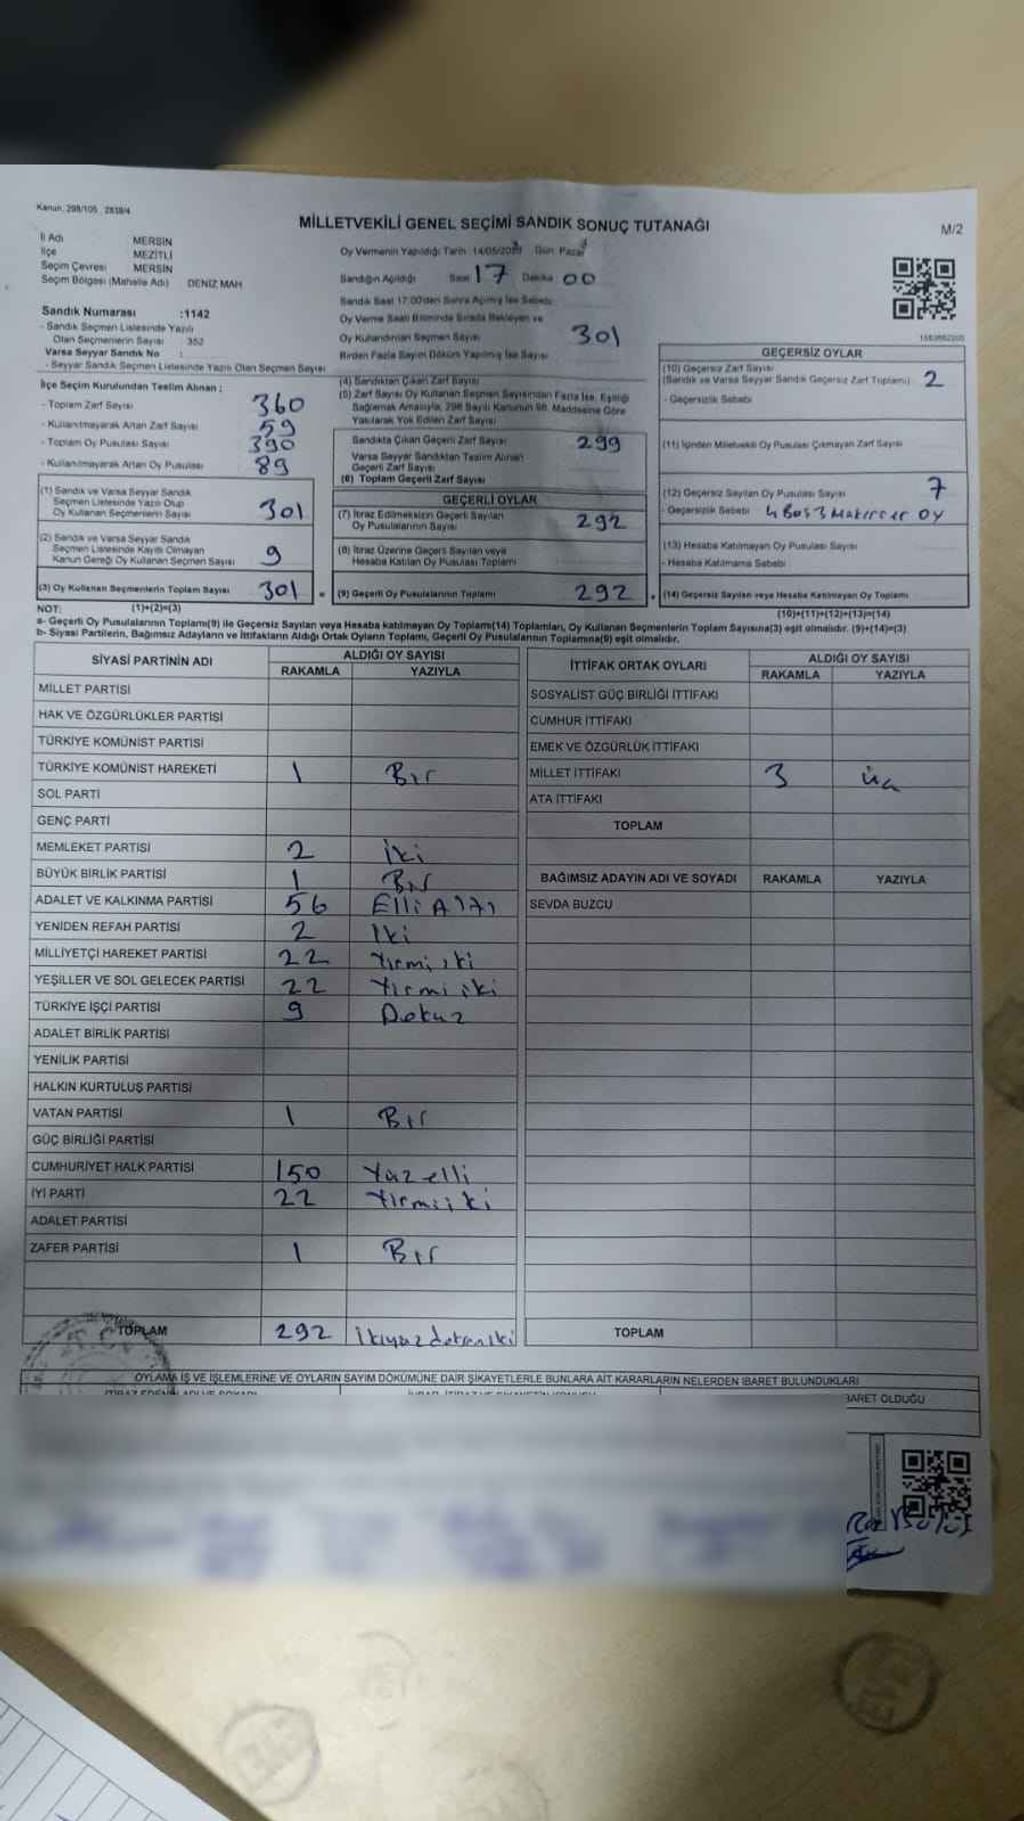 Kanun: 298/105, 2839/4
MİLLETVEKİLİ GENEL SEÇİMİ SANDIK SONUÇ TUTANAĞI
M/2
İl Adı MERSİN
İlçe MEZİTLİ
Seçim Çevresi MERSİN
Seçim Bölgesi (Mahalle Adı) DENİZ MAH
Oy Vermenin Yapıldığı Tarih 14/05/2023 Gün: Pazar
Sandığın Açıldığı Saat 17 Dakika 00
Sandık Saat 17:00'den Sonra Açılmış İse Sebebi:
Oy Verme Saati Bitiminde Sırada Bekleyen ve
Oy Kullandırılan Seçmen Sayısı 301
Birden Fazla Sayım Döküm Yapılmış İse Sayısı
Sandık Numarası :1142
- Sandık Seçmen Listesinde Yazılı
Olan Seçmenlerin Sayısı 352
Varsa Seyyar Sandık No :
- Seyyar Sandık Seçmen Listesinde Yazılı Olan Seçmen Sayısı
İlçe Seçim Kurulundan Teslim Alınan :
- Toplam Zarf Sayısı 360
- Kullanılmayarak Artan Zarf Sayısı 59
- Toplam Oy Pusulası Sayısı 390
- Kullanılmayarak Artan Oy Pusulası 89
(1) Sandık ve Varsa Seyyar Sandık
Seçmen Listesinde Yazılı Olup
Oy Kullanan Seçmenlerin Sayısı 301
(2) Sandık ve Varsa Seyyar Sandık
Seçmen Listesinde Kayıtlı Olmayan
Kanun Gereği Oy Kullanan Seçmen Sayısı 9
(3) Oy Kullanan Seçmenlerin Toplam Sayısı 301 =
(1)+(2)=(3)
(4) Sandıktan Çıkan Zarf Sayısı
(5) Zarf Sayısı Oy Kullanan Seçmen Sayısından Fazla İse, Eşitliği
Sağlamak Amacıyla, 298 Sayılı Kanunun 98. Maddesine Göre
Yakılarak Yok Edilen Zarf Sayısı
Sandıkta Çıkan Geçerli Zarf Sayısı 299
Varsa Seyyar Sandıktan Teslim Alınan
Geçerli Zarf Sayısı
(6) Toplam Geçerli Zarf Sayısı
GEÇERLİ OYLAR
(7) İtiraz Edilmeksizin Geçerli Sayılan
Oy Pusulalarının Sayısı 292
(8) İtiraz Üzerine Geçerli Sayılan veya
Hesaba Katılan Oy Pusulası Toplamı
(9) Geçerli Oy Pusulalarının Toplamı 292
GEÇERSİZ OYLAR
(10) Geçersiz Zarf Sayısı
(Sandık ve Varsa Seyyar Sandık Geçersiz Zarf Toplamı) 2
- Geçersizlik Sebebi
(11) İçinden Milletvekili Oy Pusulası Çıkmayan Zarf Sayısı
(12) Geçersiz Sayılan Oy Pusulası Sayısı 7
- Geçersizlik Sebebi 4 Boş 3 OY
(13) Hesaba Katılmayan Oy Pusulası Sayısı
- Hesaba Katılmama Sebebi
(14) Geçersiz Sayılan veya Hesaba Katılmayan Oy Toplamı
(10)+(11)+(12)+(13)=(14)
NOT:
a- Geçerli Oy Pusulalarının Toplamı(9) ile Geçersiz Sayılan veya Hesaba katılmayan Oy Toplam(14) Toplamları, Oy Kullanan Seçmenlerin Toplam Sayısına(3) eşit olmalıdır. (9)+(14)=(3)
b- Siyasi Partilerin, Bağımsız Adayların ve İttifakların Aldığı Ortak Oyların Toplamı, Geçerli Oy Pusulalarının Toplamına(9) eşit olmalıdır.
SİYASİ PARTİNİN ADI ALDIĞI OY SAYISI
RAKAMLA YAZIYLA
MİLLET PARTİSİ
HAK VE ÖZGÜRLÜKLER PARTİSİ
TÜRKİYE KOMÜNİST PARTİSİ
TÜRKİYE KOMÜNİST HAREKETİ 1 Bir
SOL PARTİ
GENÇ PARTİ
MEMLEKET PARTİSİ 2 İki
BÜYÜK BİRLİK PARTİSİ 1 Bir
ADALET VE KALKINMA PARTİSİ 56 Elli Altı
YENİDEN REFAH PARTİSİ 2 İki
MİLLİYETÇİ HAREKET PARTİSİ 22 Yirmi iki
YEŞİLLER VE SOL GELECEK PARTİSİ 22 Yirmi iki
TÜRKİYE İŞÇİ PARTİSİ 9 Dokuz
ADALET BİRLİK PARTİSİ
YENİLİK PARTİSİ
HALKIN KURTULUŞ PARTİSİ
VATAN PARTİSİ 1 Bir
GÜÇ BİRLİĞİ PARTİSİ
CUMHURİYET HALK PARTİSİ 150 Yüzelli
İYİ PARTİ 22 Yirmi iki
ADALET PARTİSİ
ZAFER PARTİSİ 1 Bir
TOPLAM 292 ikiyüzdoksaniki
İTTİFAK ORTAK OYLARI ALDIĞI OY SAYISI
RAKAMLA YAZIYLA
SOSYALİST GÜÇ BİRLİĞİ İTTİFAKI
CUMHUR İTTİFAKI
EMEK VE ÖZGÜRLÜK İTTİFAKI
MİLLET İTTİFAKI 3 üç
ATA İTTİFAKI
TOPLAM
BAĞIMSIZ ADAYIN ADI VE SOYADI RAKAMLA YAZIYLA
SEVDA BUZCU
TOPLAM
OYLAMA İŞ VE İŞLEMLERİNE VE OYLARIN SAYIM DÖKÜMÜNE DAİR ŞİKAYETLERLE BUNLARA AİT KARARLARIN NELERDEN İBARET BULUNDUKLARI
BARET OLDUĞU